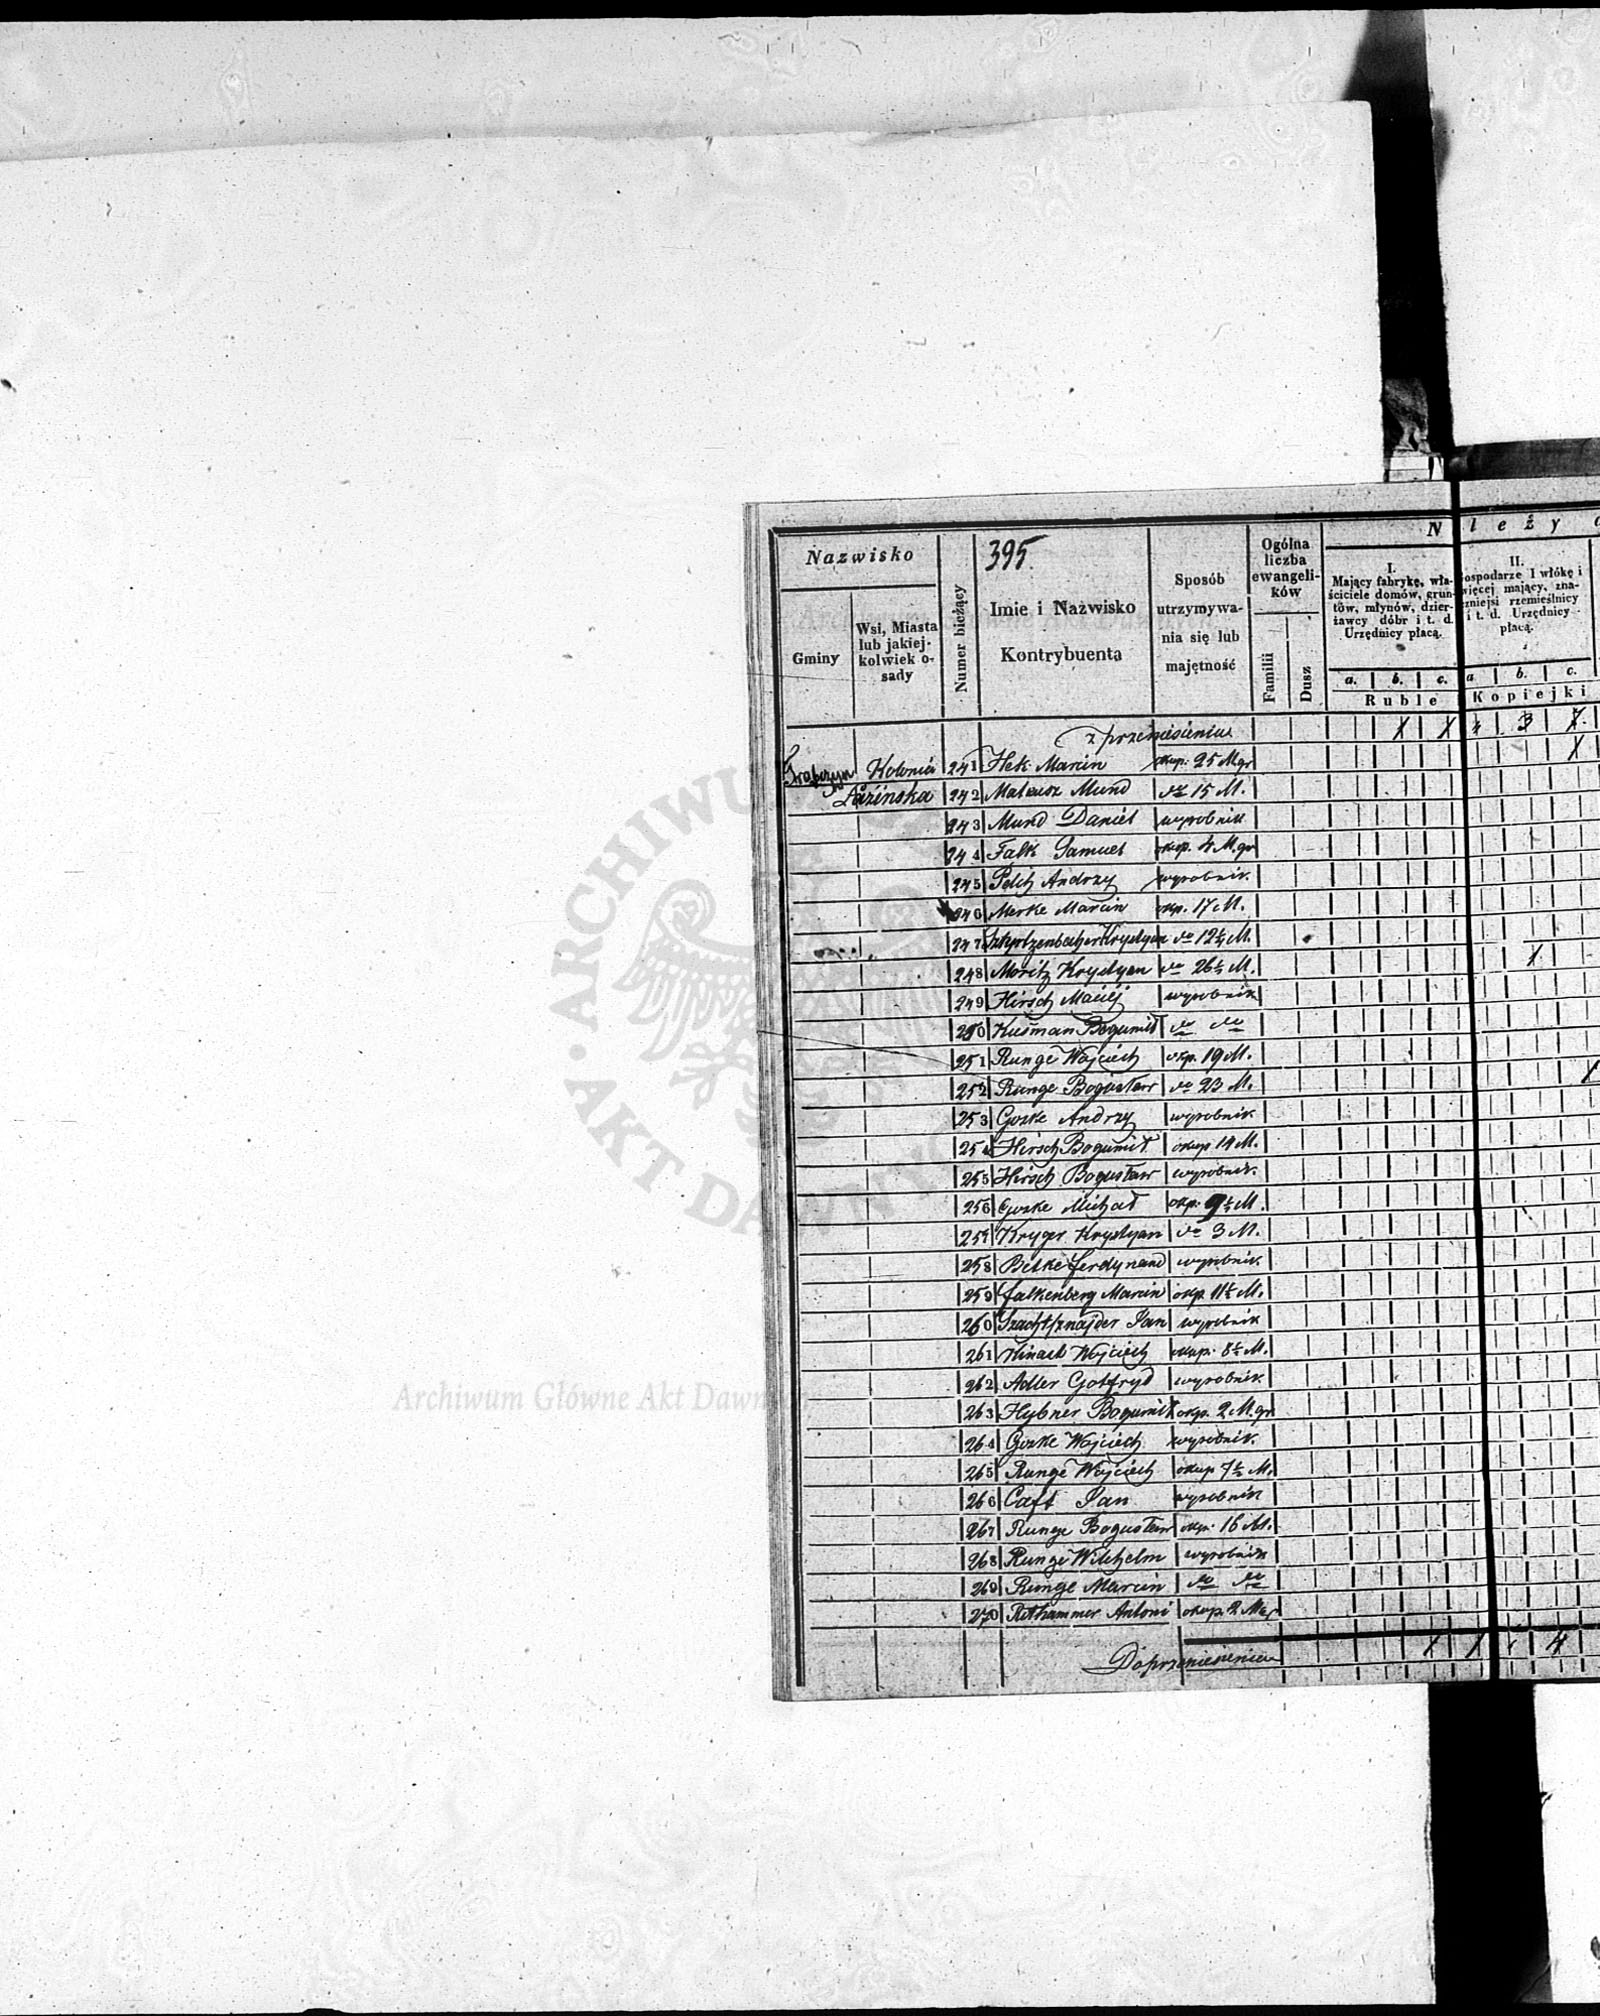 Nazwisko
Gminy
Wsi, Miasta
lub jakiej-
kolwiek o-
sady
Numer bieżący
395.
Imie i Nazwisko
Kontrybuenta
Sposób
utrzymywa-
nia się lub
majętność
Ogólna
liczba
ewangeli-
ków
Familii
Dusz
N leży
I.
Mający fabrykę, wła-
ściciele domów, grun-
tów, młynów, dzier-
żawcy dóbr i t. d.
Urzędnicy płacą.
a. b. c.
Ruble
II.
ospodarze I włókę i
więcej mający, zna-
czniejsi rzemieślnicy
i t. d. Urzędnicy
płacą.
a b. c.
Kopiejki
z przeniesienia 3
Kolonia 241 Hek Marcin okup: 25 Mgr
242 Mateusz Mund do 15 M.
243 Mund Daniel wyrobnik
244 Falk Samuel okup. 4 M.gr
245 Pelch Andrzy wyrobnik.
246 Merke Marcin okp. 17 M.
247 Krystyan do 12½ M.
248 Moritz Krystyan do 26½ M.
249 Hirsch Maciej wyrobnik
250 Bogumił do do
251 Runge Wojciech okp. 19 M.
252 Runge Bogusław do 23 M.
253 Gozke Andrzy wyrobnik
254 Hirsch Bogumił okup 14 M.
255 Hirsch Bogusław wyrobnik.
256 Gozke Michał okp. 9½ M.
257 Kryger Krystyan do 3 M.
258 Betke Ferdynand wyrobnik.
259 Falkenberg Marcin okp 11½ M.
260 Jan wyrobnik
261 Wojciech okup. 8½ M.
262 Adler Gotfryd wyrobnik
263 Hybner Bogumił okp. 2 M.gr
264 Gozke Wojciech wyrobnik.
265 Runge Wojciech okup 7½ M.
266 Caft Jan wyrobnik
267 Runge Bogusław okp. 16 M.
268 Runge Wilchelm wyrobnik
269 Runge Marcin do do
270 Rethammer Antoni okup. 2 Mgr
Do przeniesienia 4
ARCHIWUM
AKT DAWNYCH
Archiwum Główne Akt Dawnych